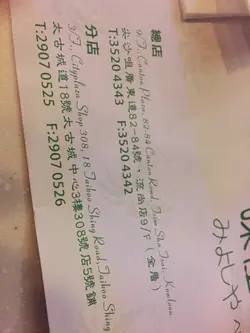 總店
9/F, Canton Plaza, 82-84 Canton Road, Tsim Sha Tsui, Kowloon.
尖沙咀廣東道82-84號,滙尚店9/F(全層)
T:3520 4343 F:3520 4342
分店
3/F, Cityplaza Shop 308, 18 Taikoo Shing Road, Taikoo Shing
太古城道18號太古城中心3樓308號店5號舖
T:2907 0525 F:2907 0526
みよしや